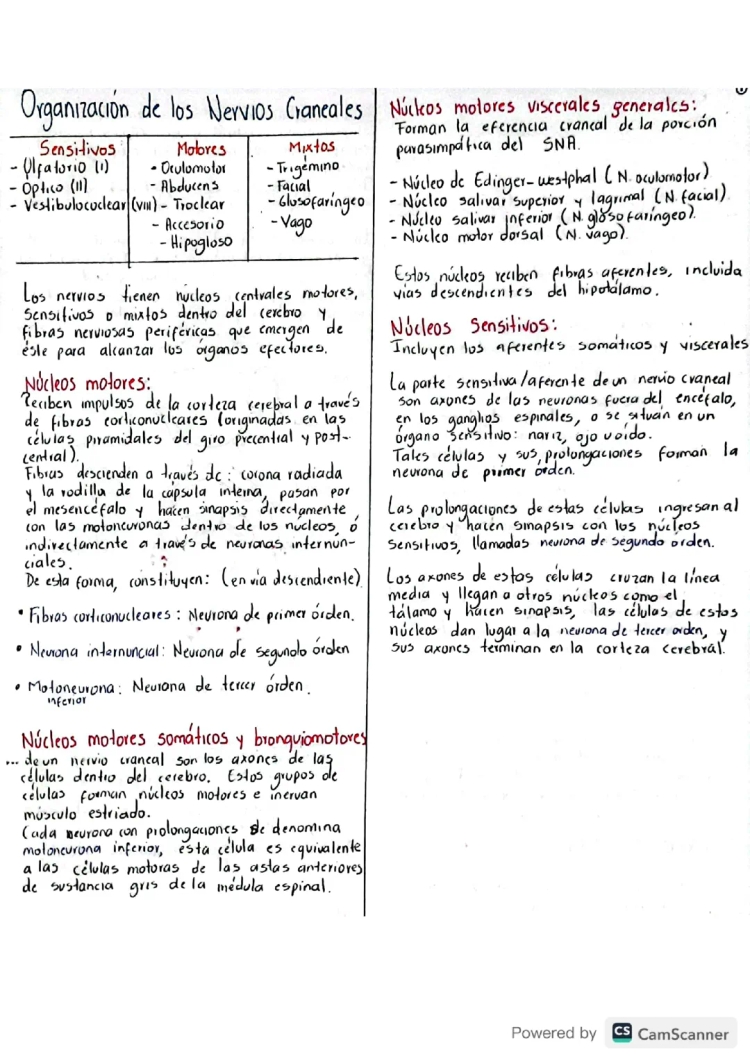 Organización de los Nervios Craneales
Sensitivos
- Olfatorio (I)
- Optico (II)
- Vestibulococlear (VIII)
Motores
- Oculomotor
- Abducens
- Troclear
- Accesorio
- Hipogloso
Mixtos
- Trigémino
- Facial
- Glosofaríngeo
- Vago
Los nervios tienen nucleos centrales motores,
sensitivos o mixtos dentro del cerebro y
fibras nerviosas periféricas que emergen de
éste para alcanzar los órganos efectores.
Núcleos motores:
Reciben impulsos de la corteza cerebral a través
de fibras corticonucleares (originadas en las
células piramidales del giro precentral y post-
central).
Fibras descienden a través de: corona radiada
y la rodilla de la cápsula interna, pasan por
el mesencéfalo y hacen sinapsis directamente
con las motoneuronas dentro de los núcleos, o
indirectamente a través de neuronas internun-
ciales.
De esta forma, constituyen: (en vía descendiente)
• Fibras corticonucleares: Neurona de primer órden.
• Neurona internuncial: Neurona de segundo órden
• Motoneurona: Neurona de tercer órden.
inferior
Núcleos motores somáticos y bronquiomotores
... de un nervio craneal son los axones de las
células dentro del cerebro. Estos grupos de
células forman núcleos motores e inervan
músculo estriado.
Cada neurona con prolongaciones se denomina
motoneurona inferior, esta célula es equivalente
a las células motoras de las astas anteriores
de sustancia gris de la médula espinal.
Núcleos motores viscerales generales:
Forman la eferencia craneal de la porción
parasimpática del SNA.
- Núcleo de Edinger-westphal (N. oculomotor)
- Núcleo salivar superior y lagrimal (N. facial).
- Núcleo salivar inferior (N. glosofaríngeo).
- Núcleo motor dorsal (N. vago).
Estos núcleos reciben fibras aferentes, incluida
vías descendientes del hipotálamo.
Núcleos Sensitivos:
Incluyen los aferentes somáticos y viscerales
La parte sensitiva/aferente de un nervio craneal
son axones de las neuronas fuera del encéfalo,
en los ganglios espinales, o se situán en un
órgano sensitivo: nariz, ojo u oído.
Tales células y sus prolongaciones forman la
neurona de primer orden.
Las prolongaciones de estas células ingresan al
cerebro y hacen sinapsis con los núcleos
sensitivos, llamadas neurona de segundo orden.
Los axones de estas células cruzan la línea
media y llegan a otros núcleos como el
tálamo y hacen sinapsis, las células de estos
núcleos dan lugar a la neurona de tercer orden, y
sus axones terminan en la corteza cerebral.
Powered by CS CamScanner